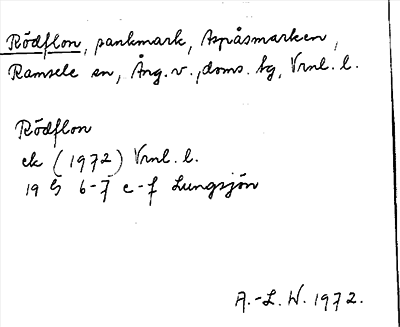 Rödflon, sankmark, Aspåsmarken,
Ramsele sn, Ång. v., doms. hg, Vrnl. l.
Rödflon
ek (1972) Vrnl. l.
19 G 6-7 e-f Lungsjön
A.-L. W. 1972.